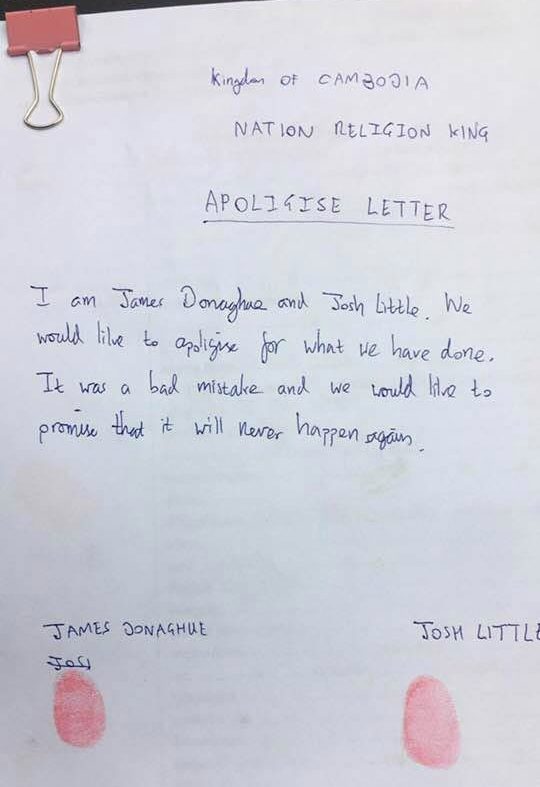 Kingdom OF CAMBODIA
NATION RELIGION KING
APOLIGISE LETTER
I am James Donaghue and Josh Little. We
would like to apoligise for what we have done.
It was a bad mistake and we would like to
promise that it will never happen again.
JAMES DONAGHUE
JOSH LITTLE